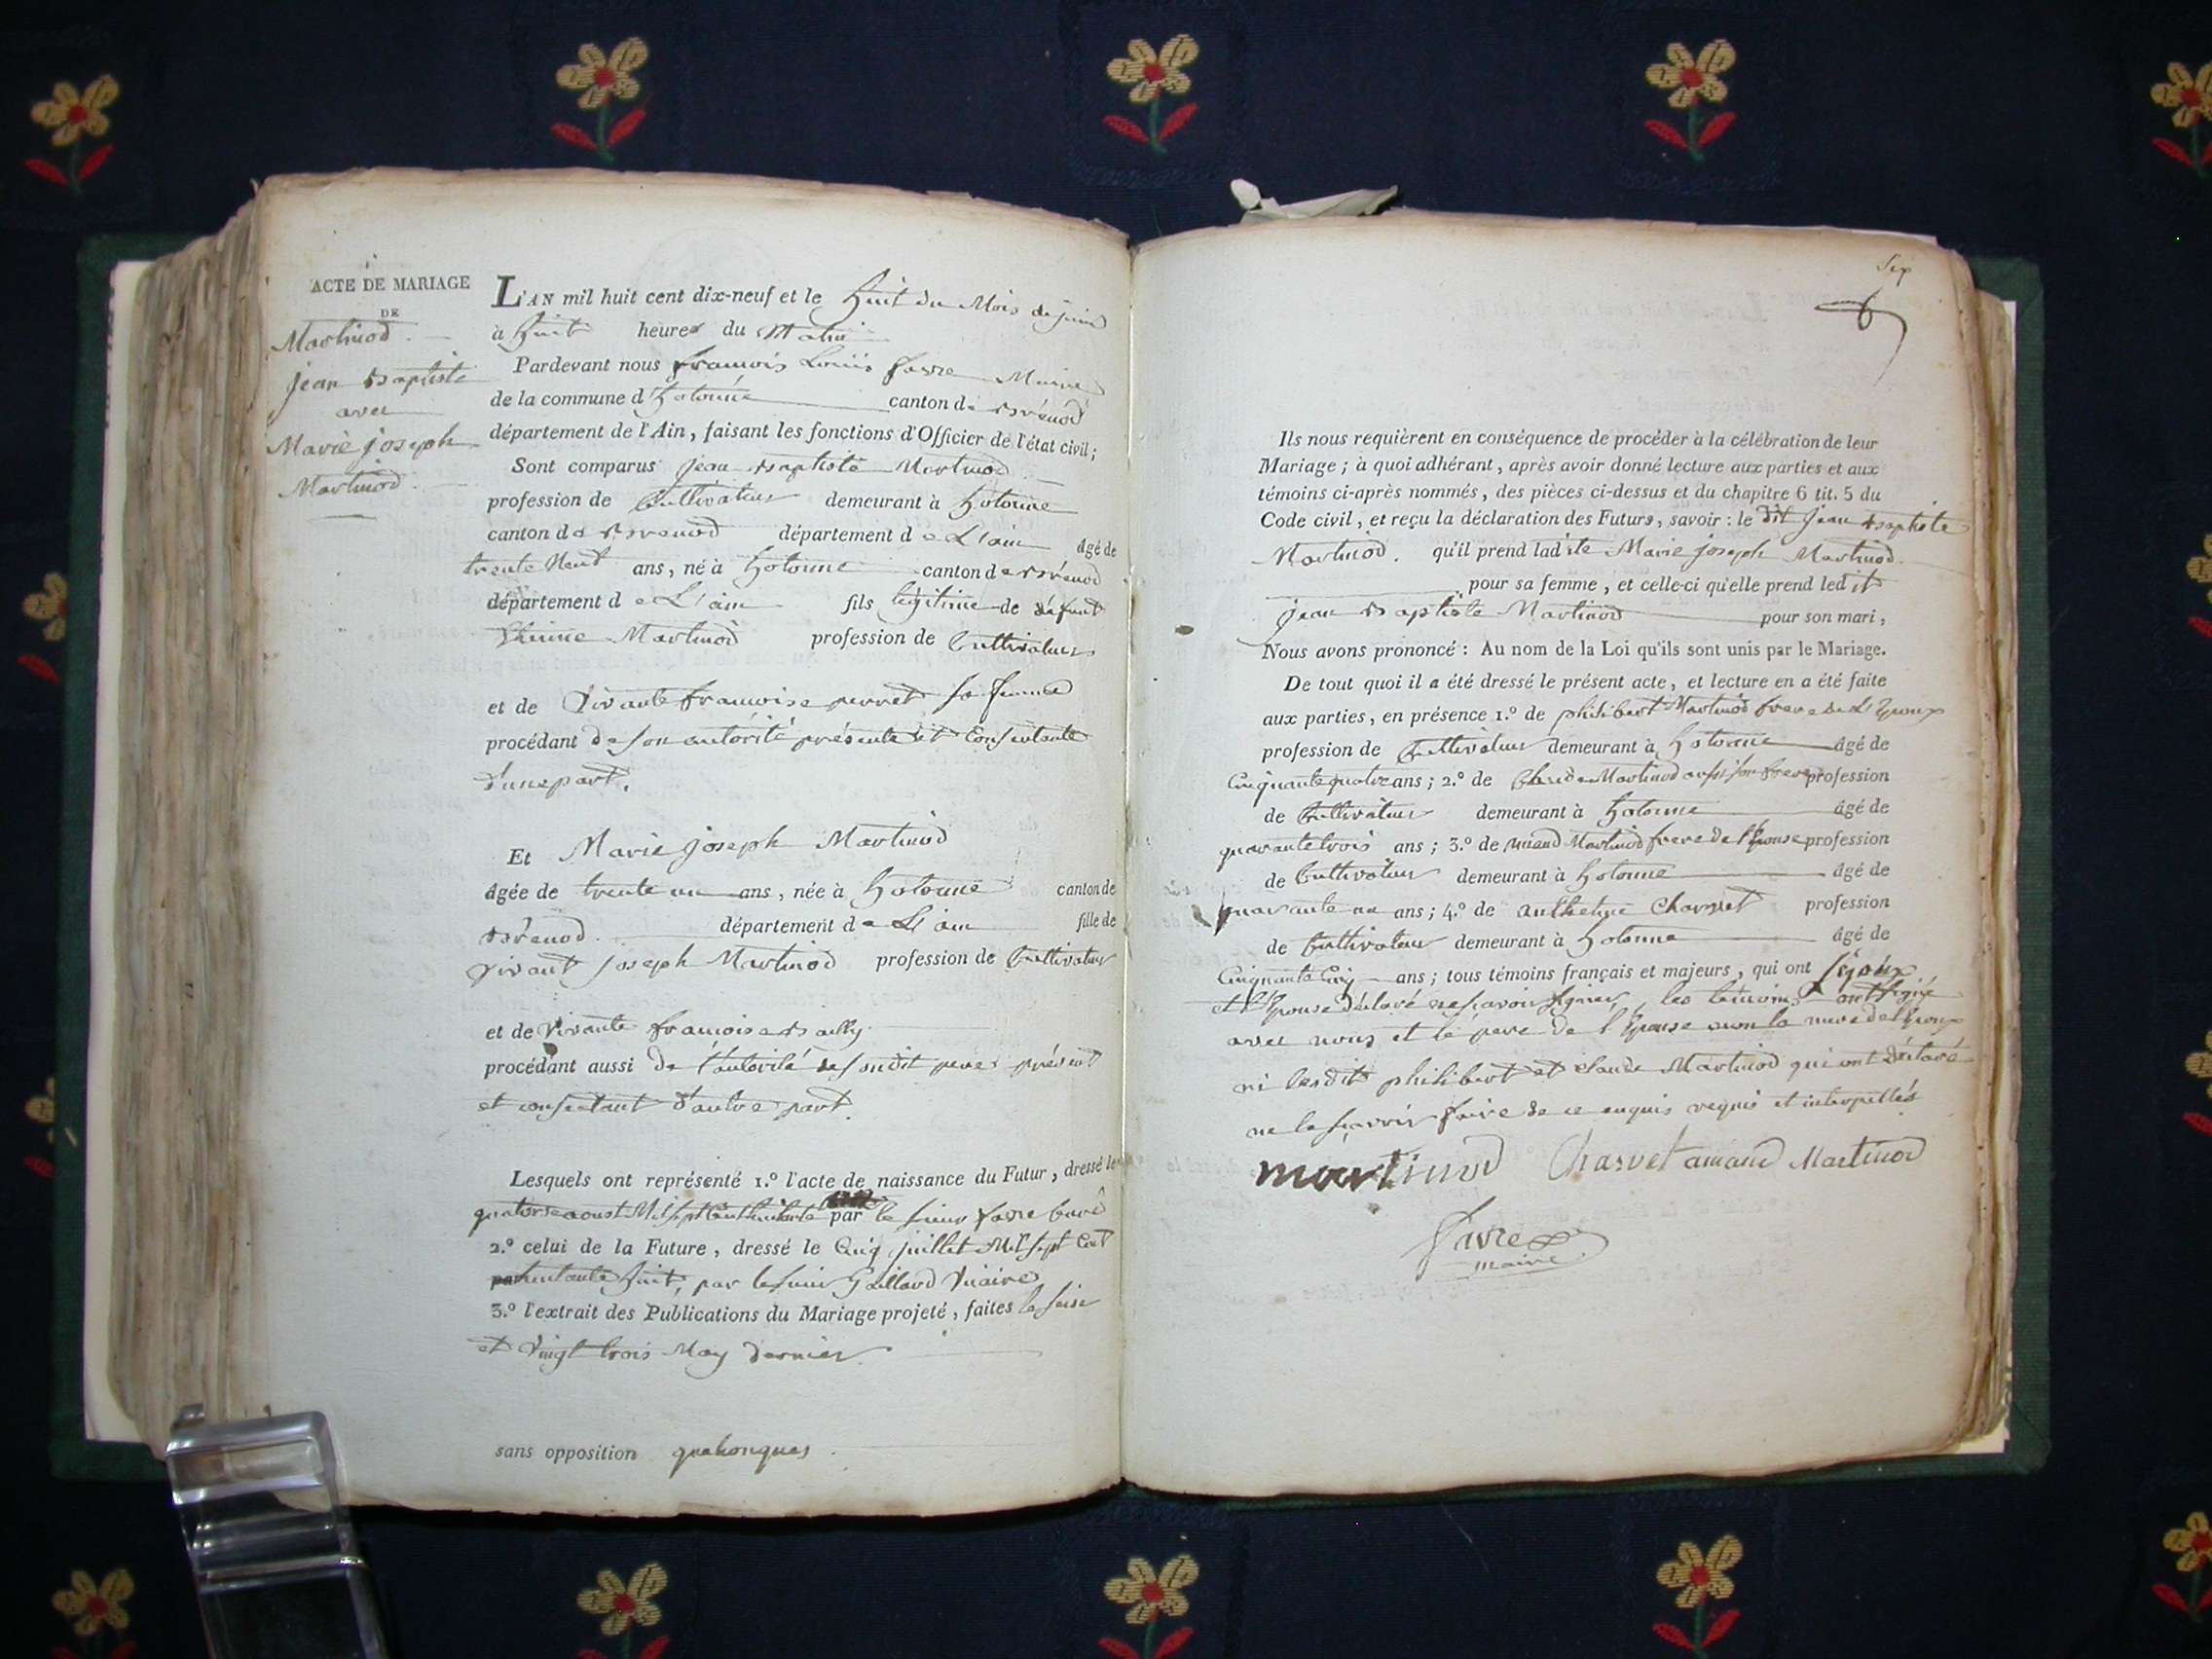 ACTE DE MARIAGE
DE
Martinod
jean Baptiste
avec
Marie joseph
Martinod
L'AN mil huit cent dix-neuf et le huit du Mois de juin
à huit heures du Matin
Pardevant nous francois Louis favre Maire
de la commune d'hotonne canton de Brénod
département de l'Ain, faisant les fonctions d'Officier de l'état civil;
Sont comparus jean Baptiste Martinod
profession de Cultivateur demeurant à hotonne
canton de Brenod département de L'ain âgé de
trente Neuf ans, né à hotonne canton de Brénod
département de L'ain fils légitime de défunt
Martinod profession de Cultivateur
et de vivante francoise perret sa femme
procédant de son autórité présente et Consentante
d'une part.
Et Marie joseph Martinod
âgée de trente un ans, née à hotonne canton de
Brénod département de L'ain fille de
vivant joseph Martinod profession de Cultivateur
et de vivante francoise Bailly
procédant aussi de l'autorité de sondit pere présent
et consentant d'autre part.
Lesquels ont représenté 1.º l'acte de naissance du Futur, dressé le
quatorse aoust Mil sept Cent huitante par le sieur favre Curé
2.º celui de la Future, dressé le Cinq juillet Mil sept Cent
huitante huit, par le sieur Gaillard Vicaire
3.º l'extrait des Publications du Mariage projeté, faites le seise
et vingt trois May dernier
sans opposition quelconques.
Six
6
Ils nous requièrent en conséquence de procéder à la célébration de leur
Mariage; à quoi adhérant, après avoir donné lecture aux parties et aux
témoins ci-après nommés, des pièces ci-dessus et du chapitre 6 tit. 5 du
Code civil, et reçu la déclaration des Futurs, savoir: le dit jean Baptiste
Martinod. qu'il prend ladite Marie joseph Martinod.
pour sa femme, et celle-ci qu'elle prend ledit
jean Baptiste Martinod pour son mari,
Nous avons prononcé: Au nom de la Loi qu'ils sont unis par le Mariage.
De tout quoi il a été dressé le présent acte, et lecture en a été faite
aux parties, en présence 1.º de philibert Martinod frere de L'Epoux
profession de Cultivateur demeurant à hotonne âgé de
Cinquante quatre ans; 2.º de Claude Martinod aussi son frere profession
de Cultivateur demeurant à hotonne âgé de
quarante trois ans; 3.º de amand Martinod frere de l'Epouse profession
de Cultivateur demeurant à hotonne âgé de
quarante un ans; 4.º de anthelme Charvet profession
de Cultivateur demeurant à hotonne âgé de
Cinquante Cinq ans; tous témoins français et majeurs, qui ont
et l'Epouse déclaré ne savoir signer, les témoins ont signé
avec nous et le pere de l'Epouse non la mere de l'Epoux
ni lesdit philibert et claude Martinod qui ont déclaré
ne le scavoir faire de ce enquis requis et interpellés
martinod Charvet amand Martinod
favre
maire